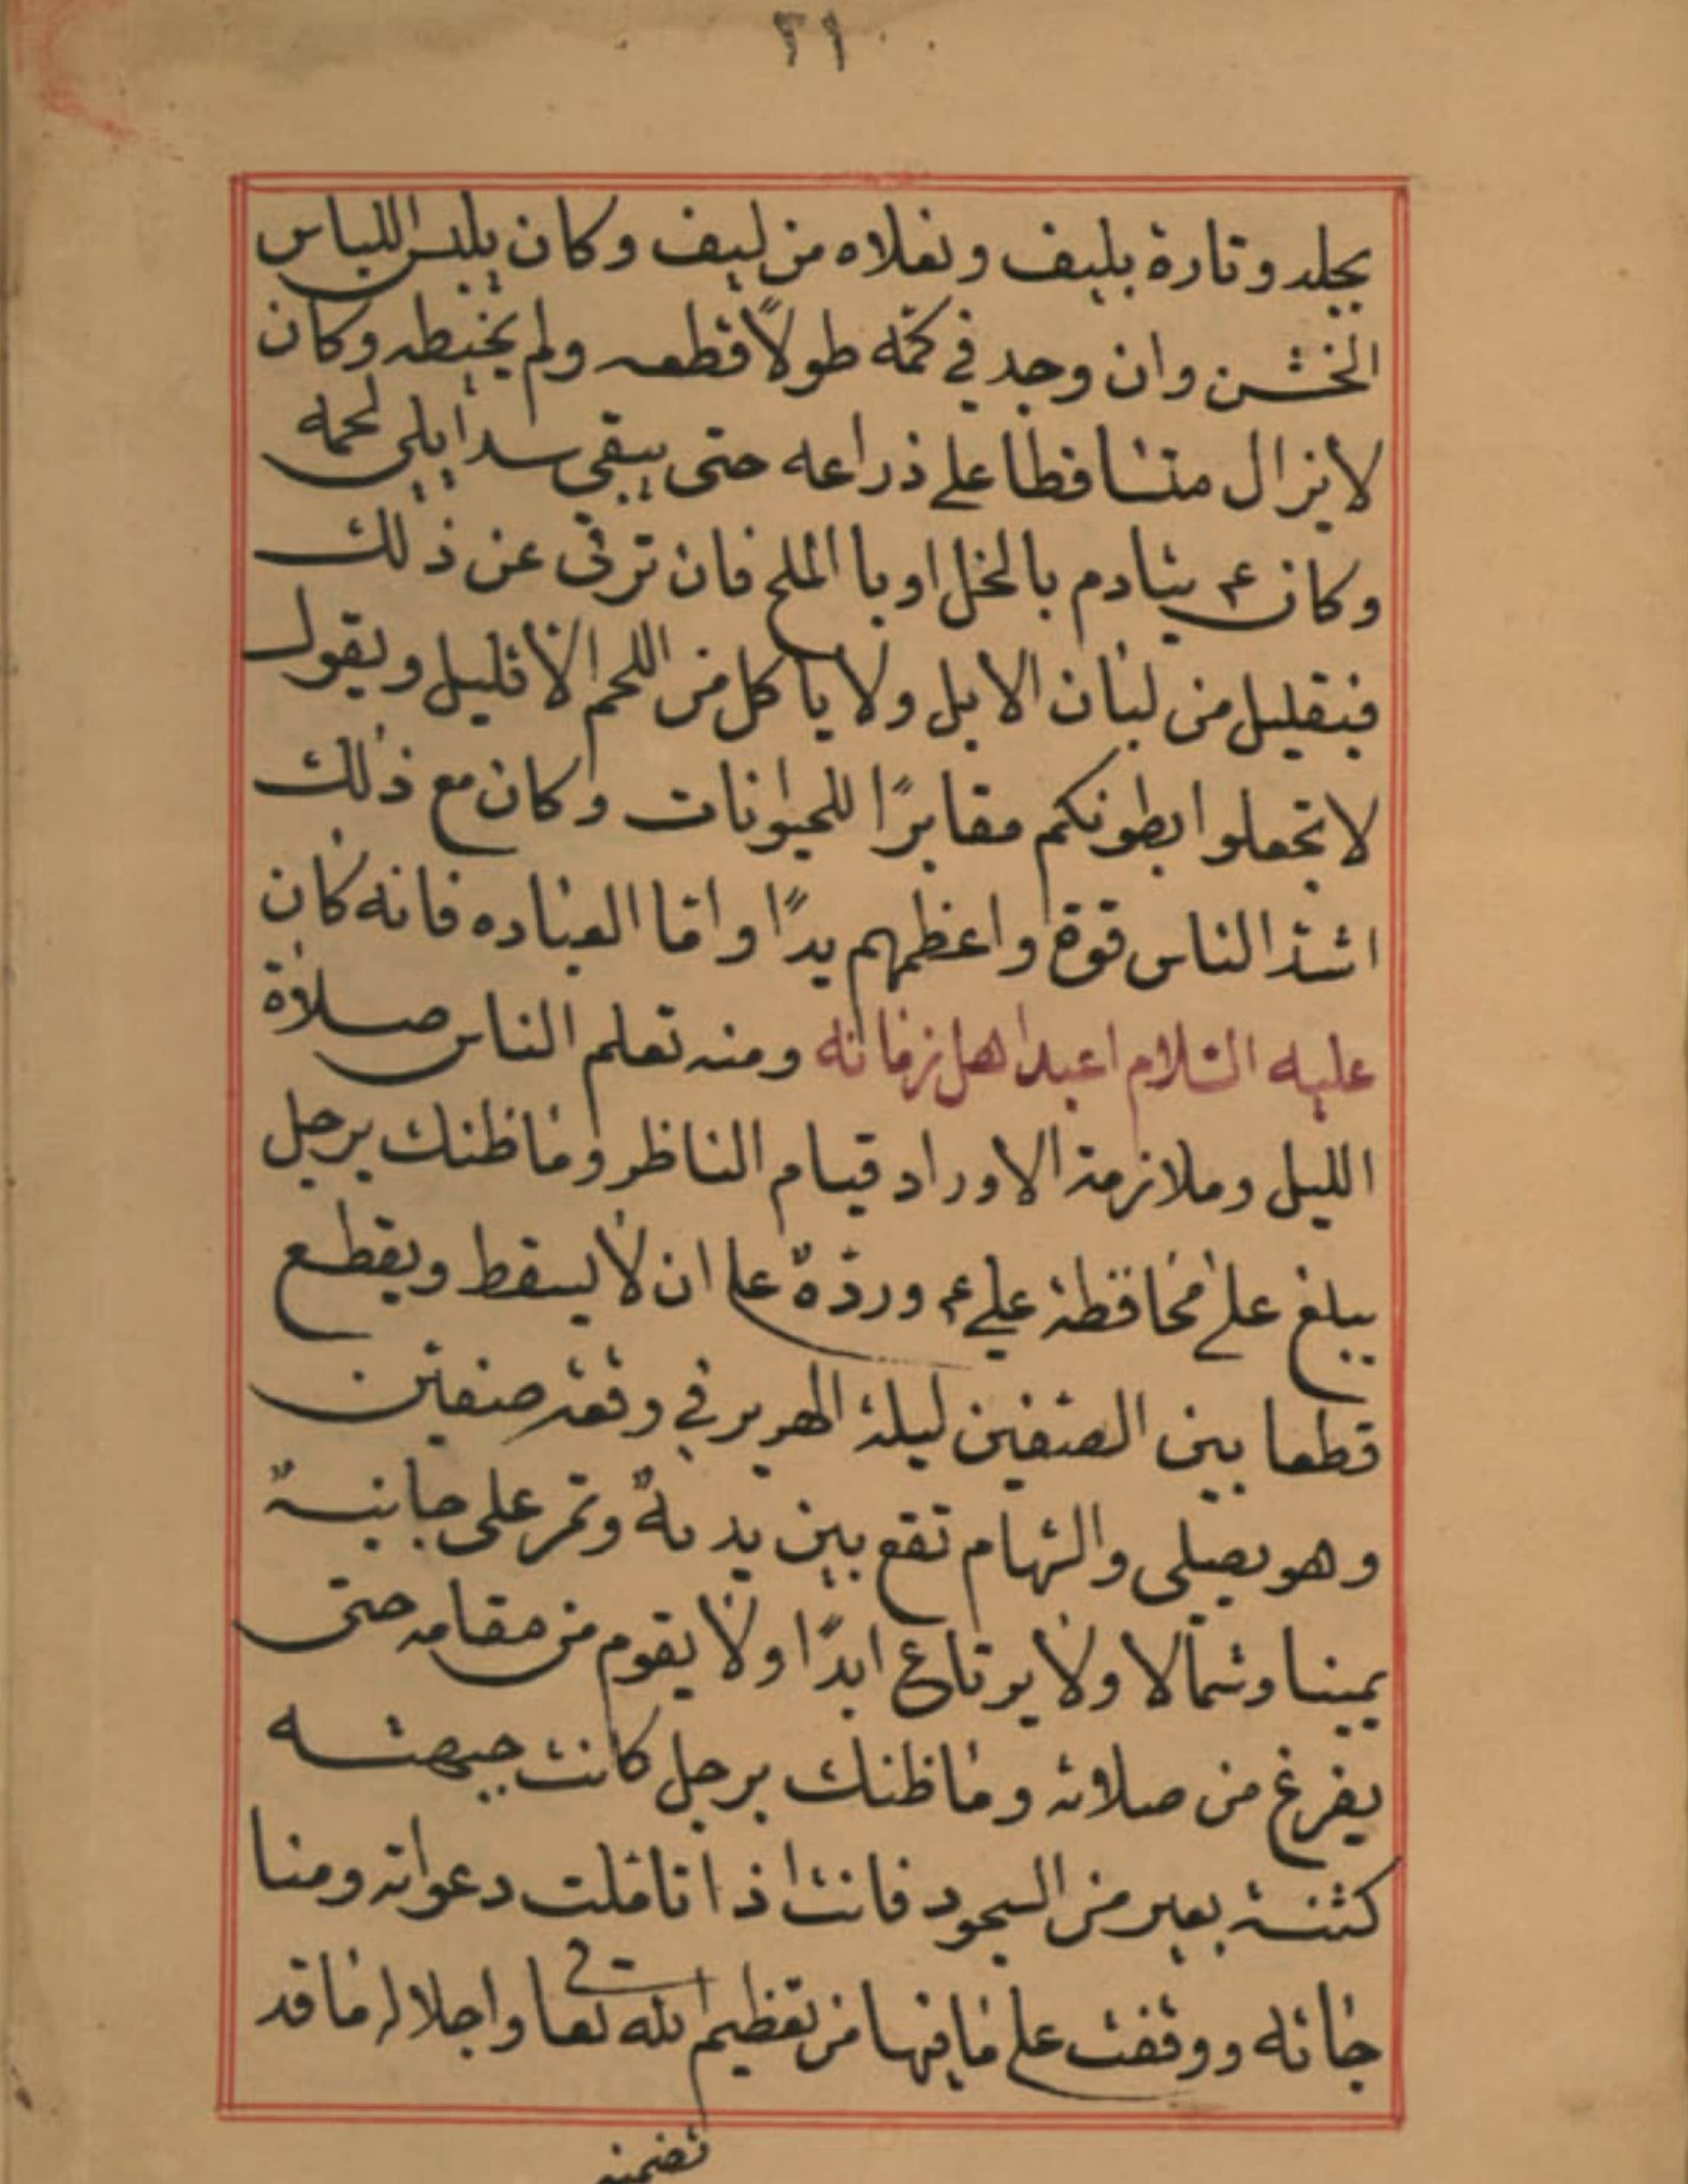 ٢١
بجلد وتارة بليف ونعلاه من ليف وكان يلبس اللباس
الخشن وان وجد في كمّه طولاً قطعه ولم يخيطه وكان
لا يزال متساقطا على ذراعه حتى يبقى سدا بلى لحمه
وكان ع يتادم بالخل او با الملح فان ترقى عن ذلك
فبقليل من لبنان الابل ولا ياكل من اللحم الا قليل ويقول
لا تجعلوا بطونكم مقابرًا للحيوانات وكان مع ذلك
اشد الناس قوة واعظمهم يدًا واما العباده فانه كان
عليه السلام اعبد اهل زمانه ومنه تعلم الناس صلاة
الليل وملازمة الاوراد قيام الناظر وما ظنك برجل
يبلغ على محافظة علي ع وردّه على ان لا يسقط ويقطع
قطعا بين الصفين ليلة الهرير في وقعة صفين
وهو يصلى والسهام تقع بين يديه وتمر على جانبيه
يمينا وشمالا ولا يرتاع ابدًا ولا يقوم من مقامه حتى
يفرغ من صلاته وما ظنك برجل كانت جبهته
كثنية بعير من السجود فانت اذا تاملت دعواته ومنا
جاته ووقفت على ما فيها من تعظيم الله تعا واجلاله ما قد
تضمنه